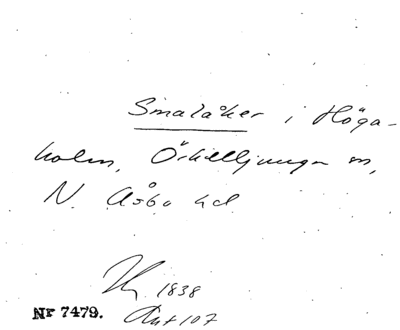 Smalåker i Höga-
holm, Örkelljunga sn,
N. Åsbo hd
1838
Nr 7479.
Avt 107